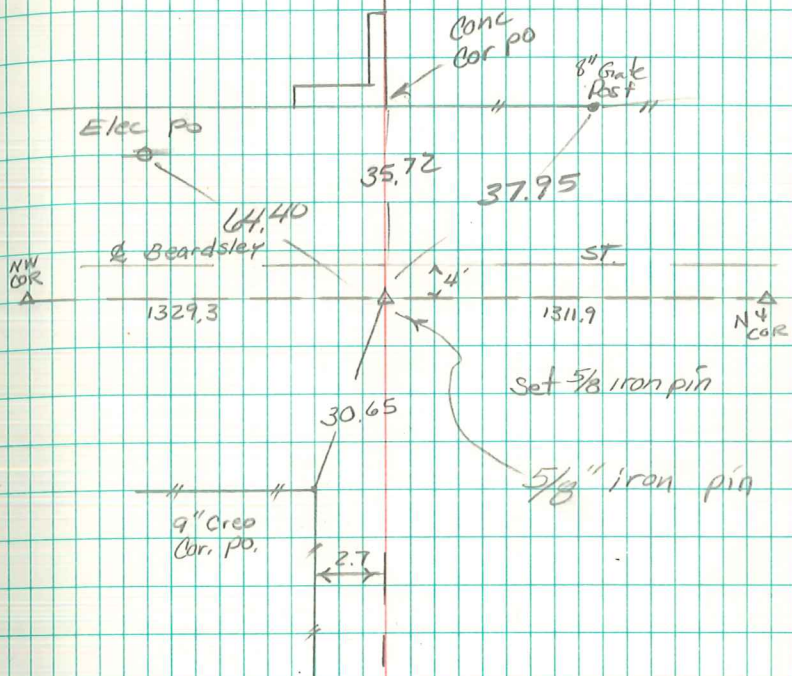 Conc
Cor po
8" Gate
Post
Elec po
35.72
37.95
64.40
℄ Beardsley ST.
NW
COR
4'
1329.3
1311.9
N 4
COR
Set 5/8 iron pin
30.65
5/8" iron pin
9" Creo
Cor. po.
2.7